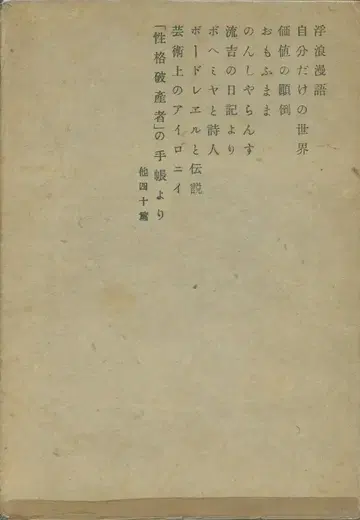 浮浪漫語
自分だけの世界
価値の顚倒
おもふまま
のんしやらんす
流吉の日記より
ボヘミヤと詩人
ボードレエルと伝説
芸術上のアイロニイ
「性格破産者」の手帳より
他四十篇